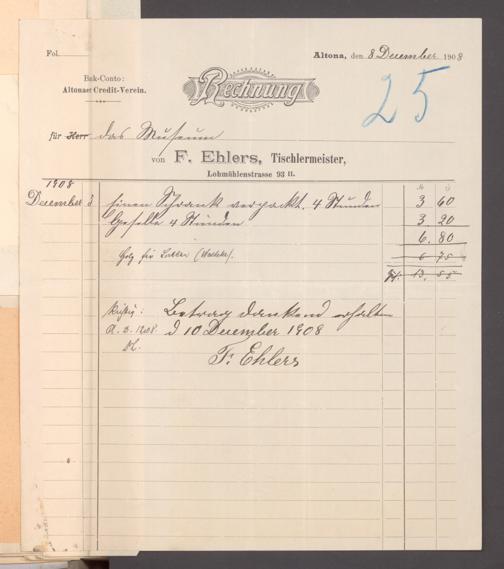 Fol.
Altona, den 8 December 1908
Bnk-Conto:
Altonaer Credit-Verein.
Rechnung
25
für Herr das Museum
von F. Ehlers, Tischlermeister,
Lohmühlenstrasse 93 II.
1908
December 3 einen Schrank verpackt. 4 Stunden 3 60
Geselle 4 Stunden 3. 20
6. 80
Holz für 6 75
13. 55
Richtig: Betrag dankend erhalten
d. 10 December 1908
F. Ehlers